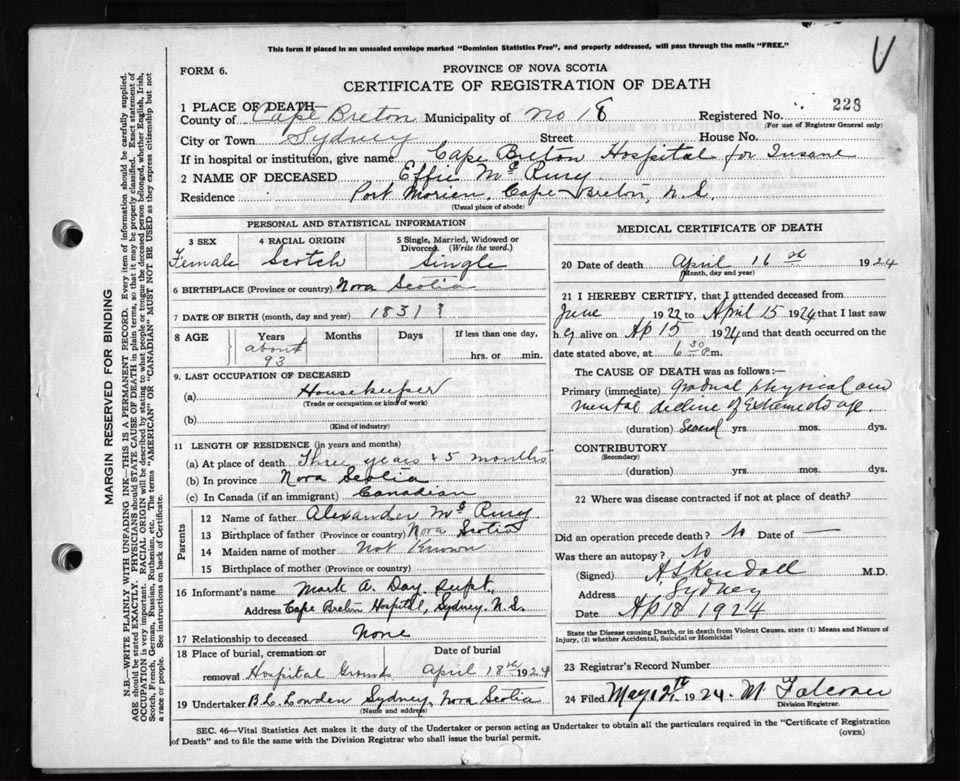 This form if placed in an unsealed envelope marked "Dominion Statistics Free", and properly addressed, will pass through the mails "FREE."
V
FORM 6.
PROVINCE OF NOVA SCOTIA
CERTIFICATE OF REGISTRATION OF DEATH
1 PLACE OF DEATH—
228
County of Cape Breton Municipality of No 18 Registered No.
(For use of Registrar General only)
City or Town Sydney Street House No.
If in hospital or institution, give name Cape Breton Hospital for Insane
2 NAME OF DECEASED Effie Mc Rury
Residence Port Morien, Cape Breton, N.S.,
(Usual place of abode)
PERSONAL AND STATISTICAL INFORMATION
3 SEX 4 RACIAL ORIGIN 5 Single, Married, Widowed or Divorced. (Write the word.)
Female Scotch Single
6 BIRTHPLACE (Province or country) Nova Scotia
7 DATE OF BIRTH (month, day and year) 1831 ?
8 AGE Years Months Days If less than one day,
about 93 hrs. or min.
9. LAST OCCUPATION OF DECEASED
(a) Housekeeper
(Trade or occupation or kind of work)
(b)
(Kind of industry)
11 LENGTH OF RESIDENCE (in years and months)
(a) At place of death Three years & 5 months
(b) In province Nova Scotia
(c) In Canada (if an immigrant) Canadian
Parents
12 Name of father Alexander Mc Rury
13 Birthplace of father (Province or country) Nova Scotia
14 Maiden name of mother Not Known
15 Birthplace of mother (Province or country)
16 Informant's name Mark A. Day. Supt.
Address Cape Breton Hospital, Sydney. N.S.
17 Relationship to deceased None
18 Place of burial, cremation or Date of burial
removal Hospital Grounds April 18th 1924
19 Undertaker B.L. Cowden Sydney, Nova Scotia
(Name and address)
MEDICAL CERTIFICATE OF DEATH
20 Date of death April 16th 1924
(Month, day and year)
21 I HEREBY CERTIFY, that I attended deceased from
June 1922 to April 15 1924 that I last saw
h er alive on Ap 15 1924 and that death occurred on the
date stated above, at 6 30 p.m.
The CAUSE OF DEATH was as follows:—
Primary (immediate) Gradual physical and
mental decline of Extreme old age.
(duration) Several yrs. mos. dys.
CONTRIBUTORY
(Secondary)
(duration) yrs. mos. dys.
22 Where was disease contracted if not at place of death?
Did an operation precede death? No Date of —
Was there an autopsy? No
(Signed) A S Kendall M.D.
Address Sydney
Date Ap 18 1924
State the Disease causing Death, or in death from Violent Causes, state (1) Means and Nature of
Injury, (2) whether Accidental, Suicidal or Homicidal
23 Registrar's Record Number
24 Filed May 12th 1924. M Falconer
Division Registrar.
SEC. 46—Vital Statistics Act makes it the duty of the Undertaker or person acting as Undertaker to obtain all the particulars required in the "Certificate of Registration
of Death" and to file the same with the Division Registrar who shall issue the burial permit.
(OVER)
MARGIN RESERVED FOR BINDING
N.B.—WRITE PLAINLY WITH UNFADING INK—THIS IS A PERMANENT RECORD. Every item of information should be carefully supplied.
AGE should be stated EXACTLY. PHYSICIANS should STATE CAUSE OF DEATH in plain terms, so that it may be properly classified. Exact statement of
OCCUPATION is very important. RACIAL ORIGIN will be described by stating to what people or tongue the deceased person belonged, whether English, Irish,
Scotch, French, German, Russian, Ruthenian, etc. The terms "AMERICAN" OR "CANADIAN" MUST NOT BE USED as they express citizenship but not
a race or people. See instructions on back of Certificate.